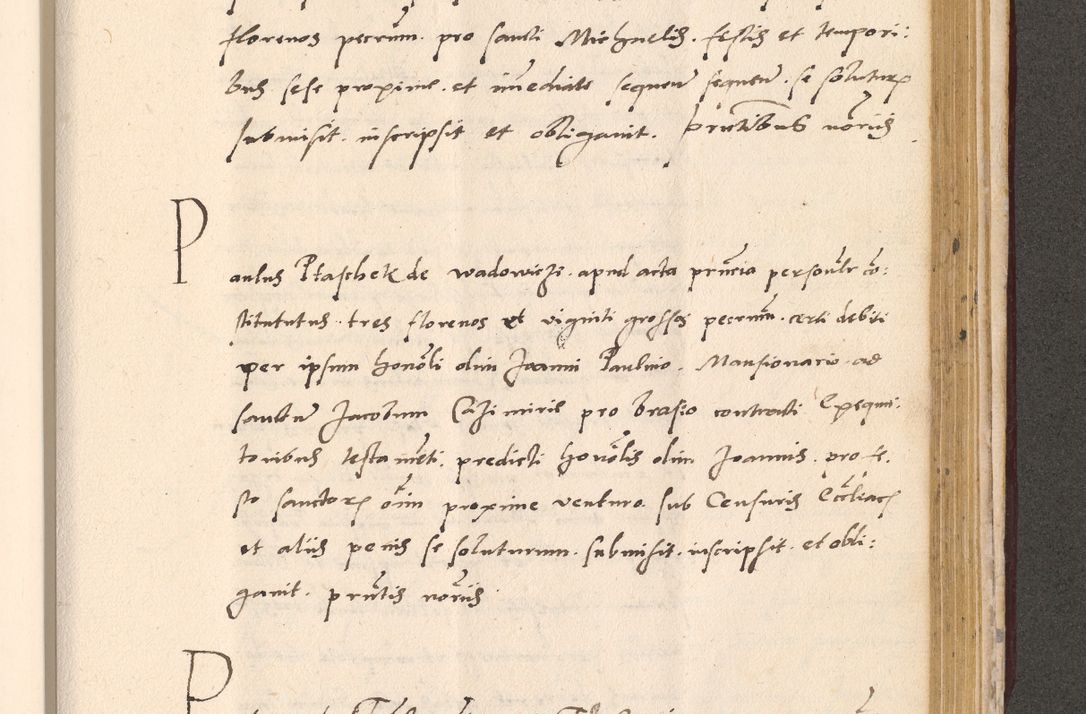 florenos pecrum. pro sancti Michaelis. festis et tempori:
bus sese proxime. et imediate sequen sequen. se soluturum
submisit. inscripsit et obligavit. prntibus noriis.
Paulus Ptaschek de wadowicze. apud acta prncia personalr co:
stitututus. tres florenos et viginti grossos pecrum. certi debiti
per ipsum honoli olim Joanni Paulino. Mansionario ad
sanctu Jacobum Casimirie pro brasio contracti Exequu:
toribus testameti. predicti honolis olim Joannis. pro fe.
sto sanctor oim proxime venturo. sub Censuris Eccliac
et aliis penis se soluturum. submisit. inscripsit. et obli:
gavit. prntis noriis.
P